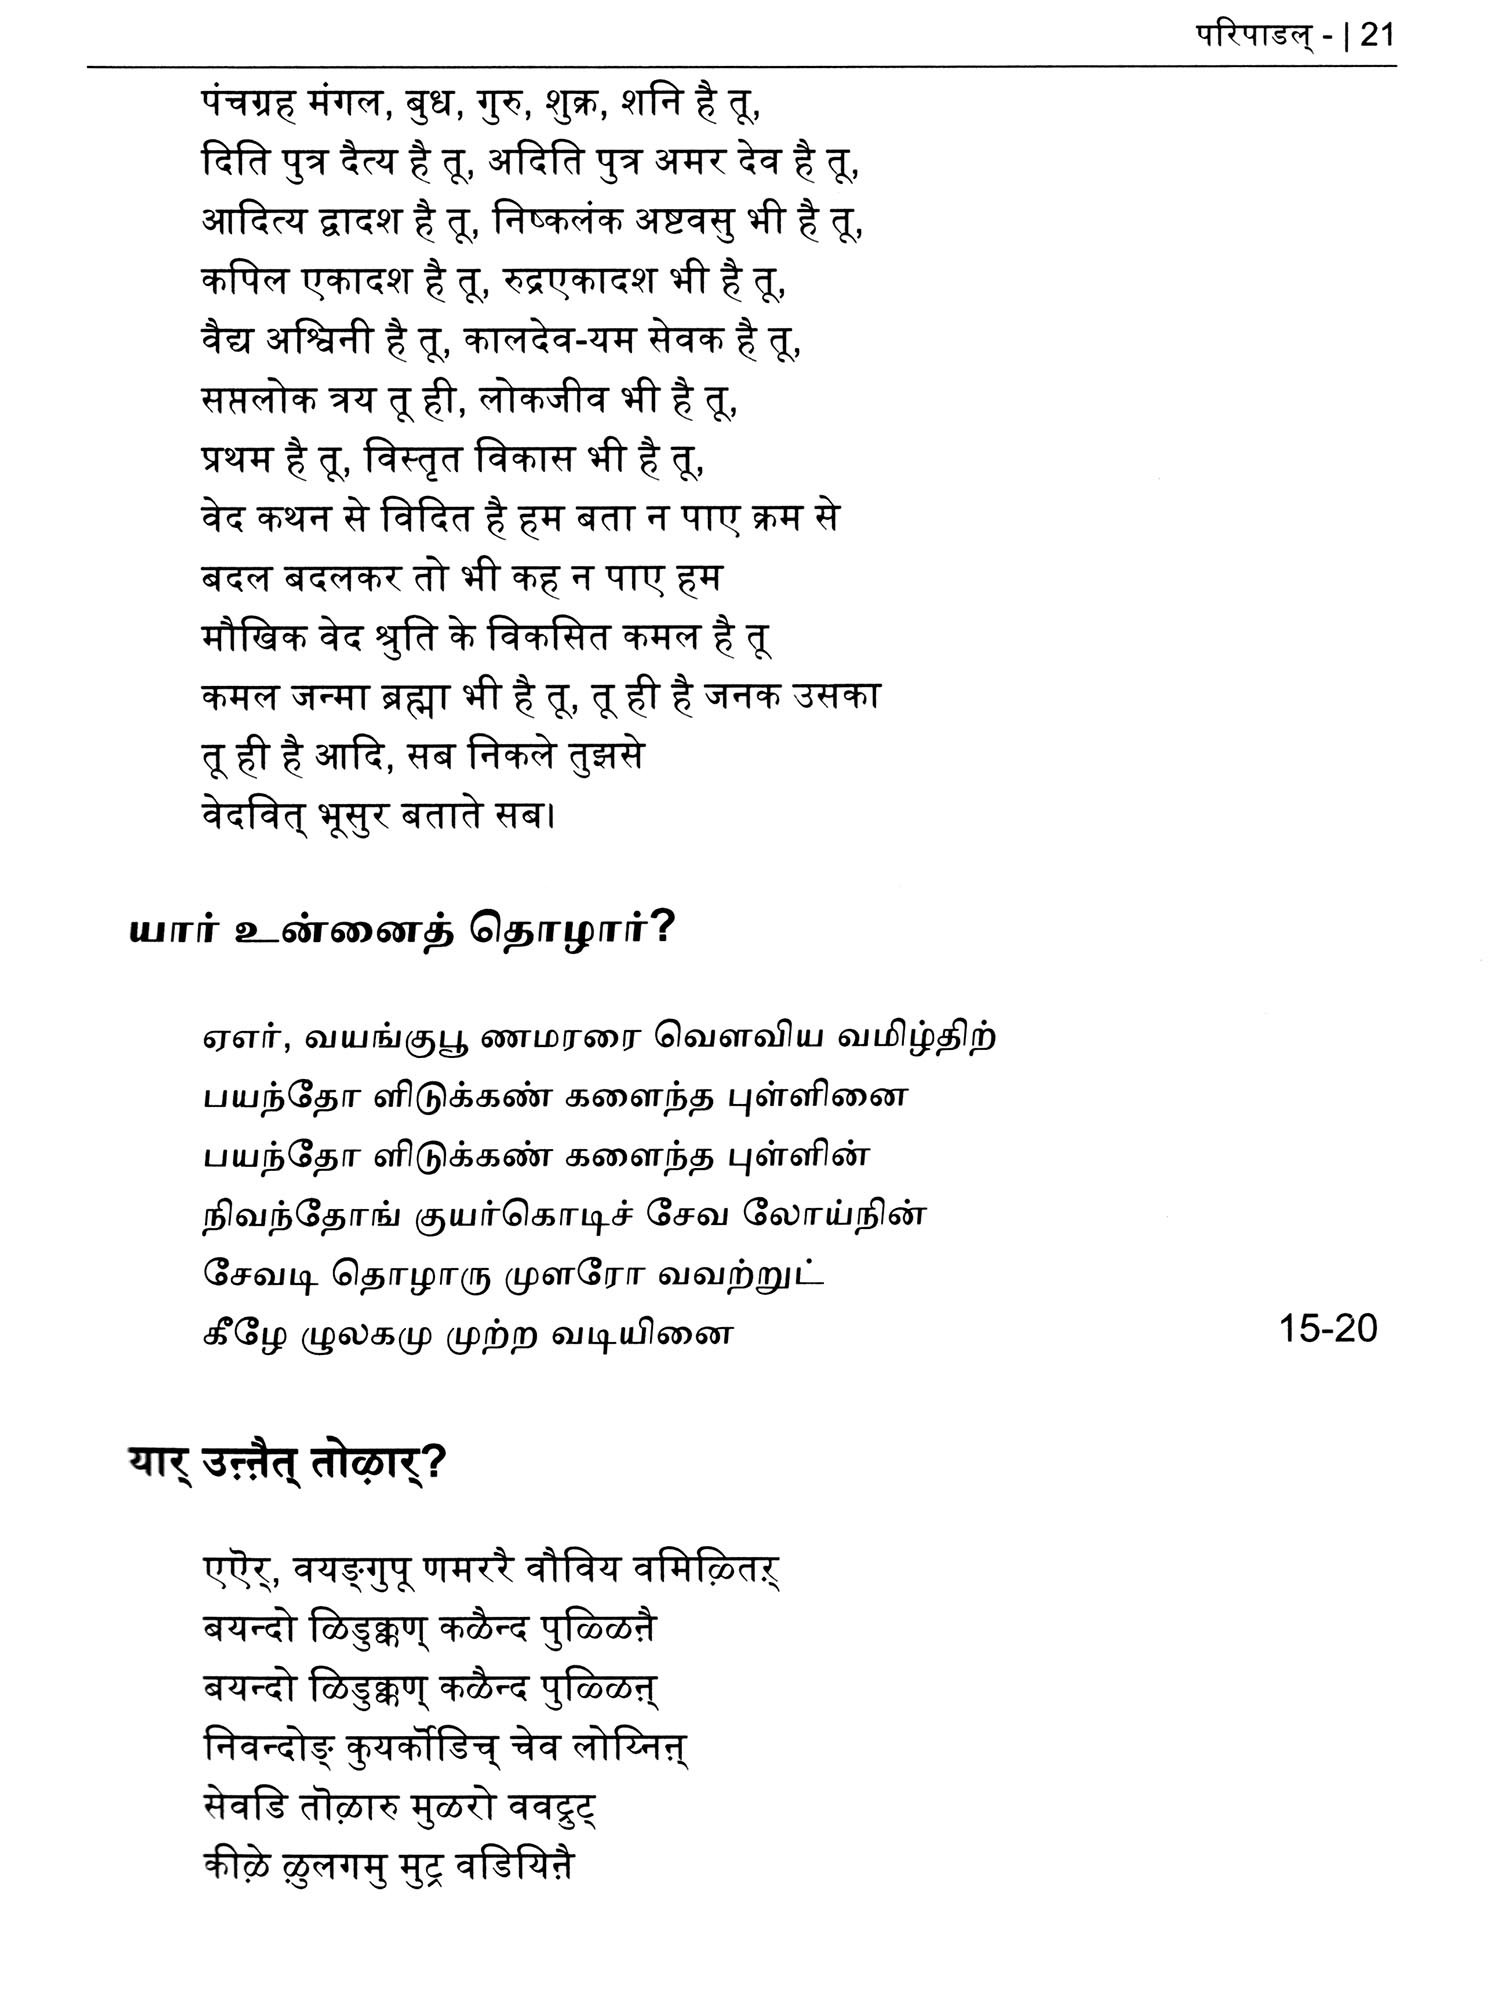 परिपाडल् - | 21
पंचग्रह मंगल, बुध, गुरु, शुक्र, शनि है तू,
दिति पुत्र दैत्य है तू, अदिति पुत्र अमर देव है तू,
आदित्य द्वादश है तू, निष्कलंक अष्टवसु भी है तू,
कपिल एकादश है तू, रुद्रएकादश भी है तू,
वैद्य अश्विनी है तू, कालदेव-यम सेवक है तू,
सप्तलोक त्रय तू ही, लोकजीव भी है तू,
प्रथम है तू, विस्तृत विकास भी है तू,
वेद कथन से विदित है हम बता न पाए क्रम से
बदल बदलकर तो भी कह न पाए हम
मौखिक वेद श्रुति के विकसित कमल है तू
कमल जन्मा ब्रह्मा भी है तू, तू ही है जनक उसका
तू ही है आदि, सब निकले तुझसे
वेदवित् भूसुर बताते सब।
யார் உன்னைத் தொழார்?
ஏஎர், வயங்குபூ ணமரரை வெளவிய வமிழ்திற்
பயந்தோ ளிடுக்கண் களைந்த புள்ளினை
பயந்தோ ளிடுக்கண் களைந்த புள்ளின்
நிவந்தோங் குயர்கொடிச் சேவ லோய்நின்
சேவடி தொழாரு முளரோ வவற்றுட்
கீழே ழுலகமு முற்ற வடியினை
15-20
यार् उऩ्ऩैत् तोऴार्?
एऎर्, वयङ्गुपू णमररै वौविय वमिऴ्तिऱ्
बयन्दो ळिडुक्कण् कळैन्द पुळ्ळिऩै
बयन्दो ळिडुक्कण् कळैन्द पुळ्ळिऩ्
निवन्दोङ् कुयर्कॊडिच् चेव लोय्निऩ्
सेवडि तॊऴारु मुळरो ववट्रुट्
कीऴे ऴुलगमु मुट्र वडियिऩै